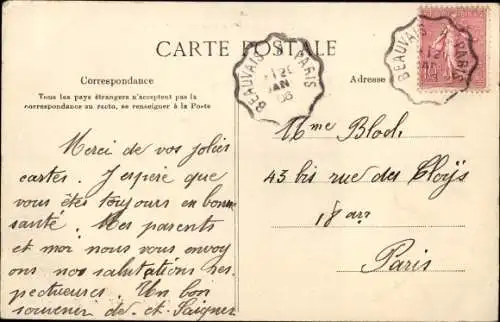 CARTE POSTALE
BEAUVAIS
PARIS
12
JAN
06
BEAUVAIS
PARIS
12
Correspondance
Tous les pays étrangers n'acceptent pas la
correspondance au recto, se renseigner à la Poste
Adresse
Merci de vos jolies
cartes. J'espère que
vous êtes toujours en bonne
santé. Mes parents
et moi nous vous envoy
ons nos salutations res
pectueuses. Un bon
souvenir de
Mme Bloch
43 bis rue des Cloÿs
18 arr
Paris